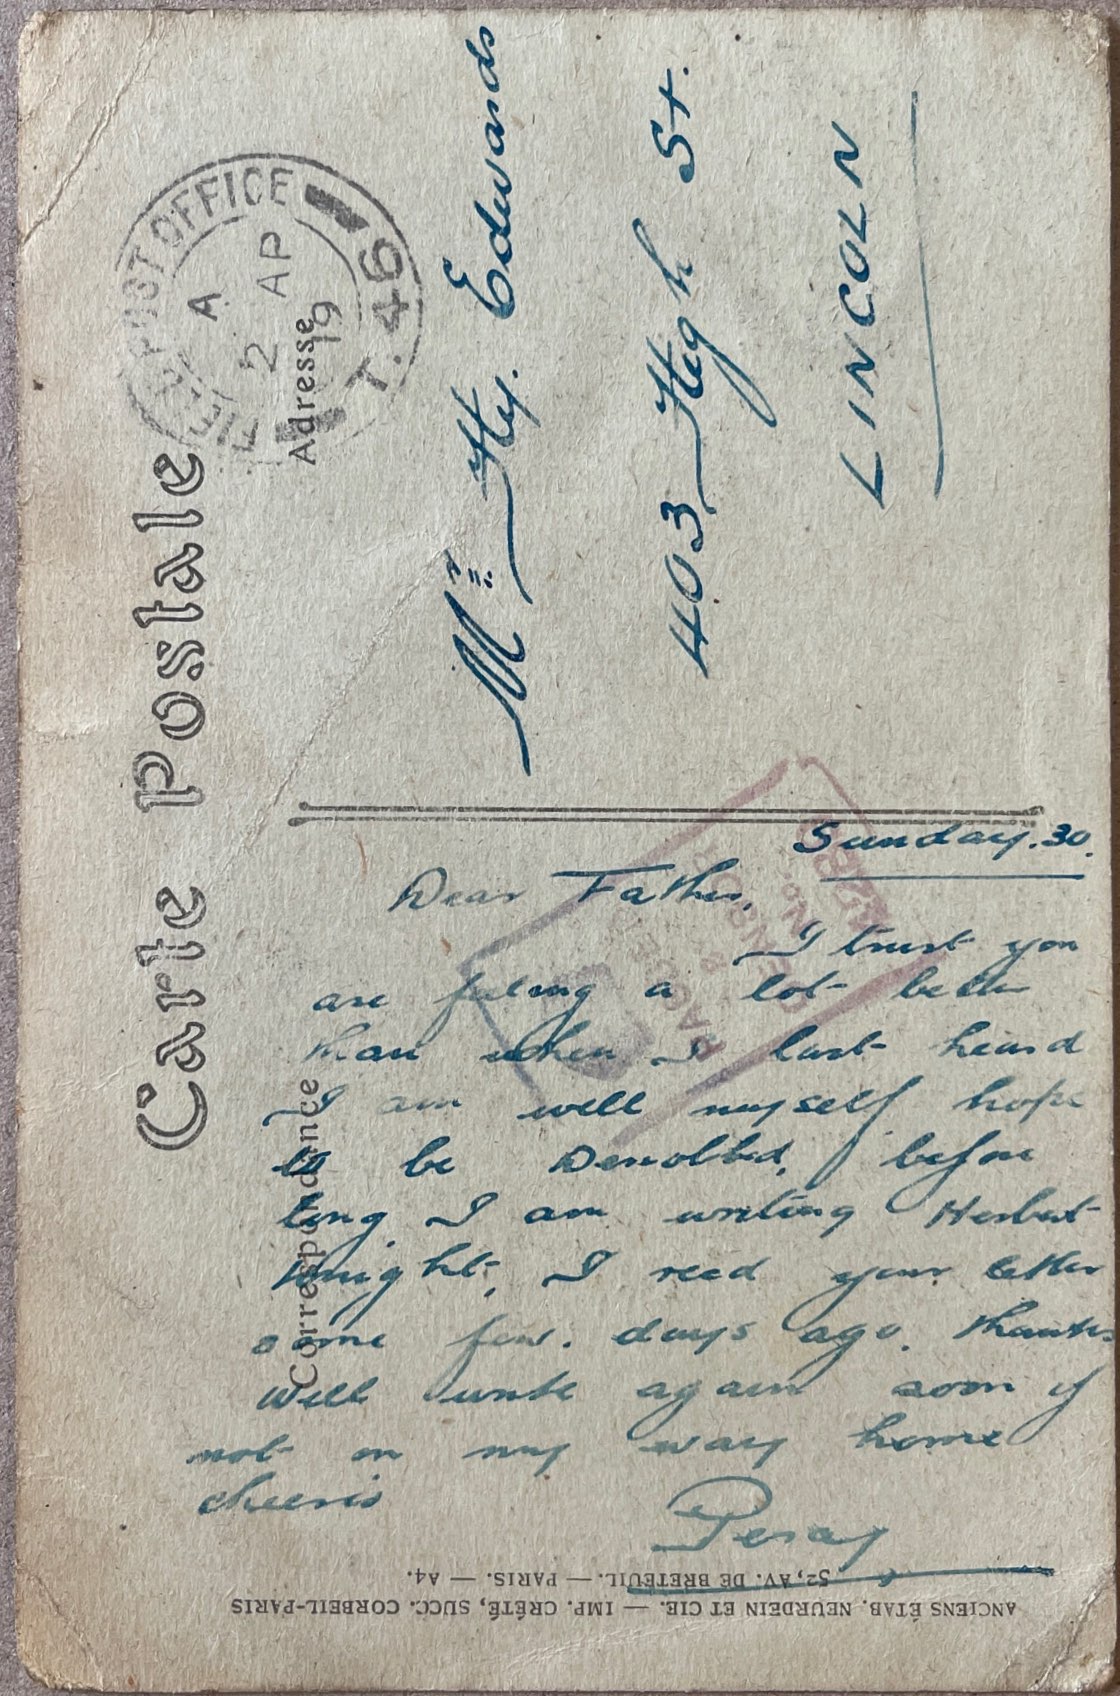 Carte Postale
Correspondance
Adresse
POST OFFICE
A
2 AP
19
T.46
Mr. Hy. Edwards
403 High St.
LINCOLN
Sunday. 30.
Dear Father,
I trust you
are feeling a lot better
than when I last heard
I am well myself hope
to be Demobbed, before
long I am writing Herbert
tonight, I recd your letter
some few. days ago. thanks
will write again soon if
not on my way home
cheerio
Percy
ANCIENS ÉTAB. NEURDEIN ET CIE. — IMP. CRÉTÉ, SUCC. CORBEIL-PARIS
52, AV. DE BRETEUIL. — PARIS. — A4.